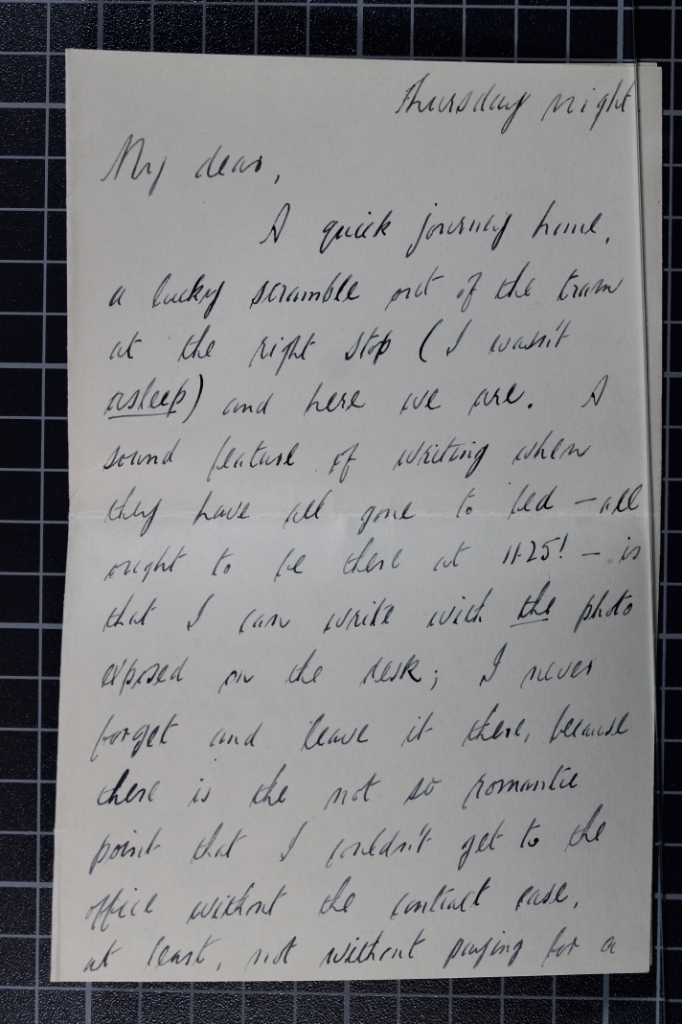 Thursday night.
My dear,
A quick journey home,
a lucky scramble out of the tram
at the right stop (I wasn't
asleep) and here we are. A
sound feature of writing when
they have all gone to bed – all
ought to be there at 11.25! – is
that I can write with the photo
exposed on the desk; I never
forget and leave it there, because
there is the not so romantic
point that I couldn't get to the
office without the contract case,
at least, not without paying for a